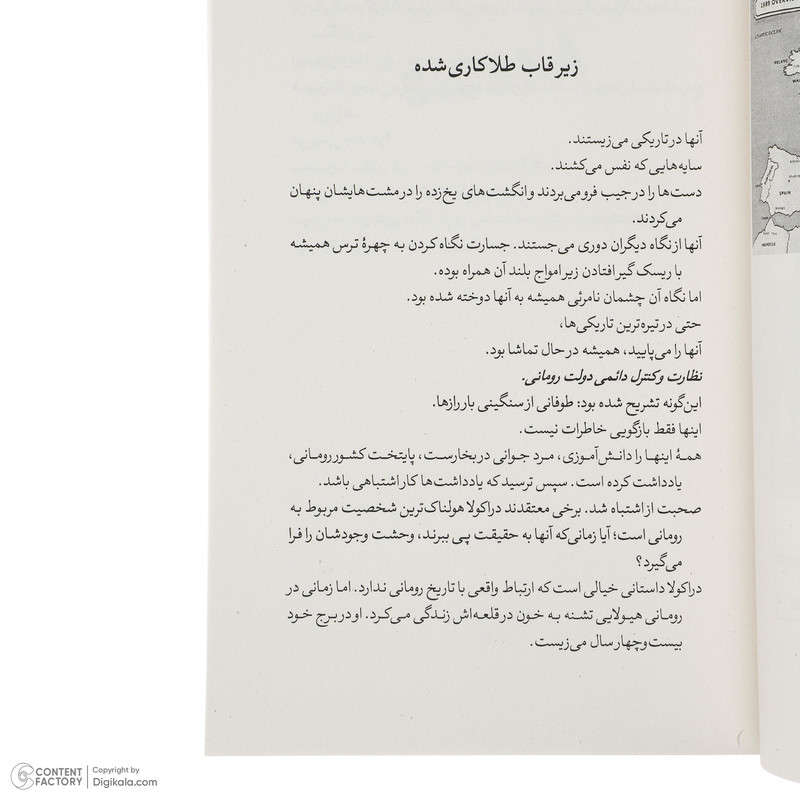 زیر قاب طلاکاری‌شده
آنها در تاریکی می‌زیستند.
سایه‌هایی که نفس می‌کشند.
دست‌ها را در جیب فرو می‌بردند و انگشت‌های یخ‌زده را در مشت‌هایشان پنهان
می‌کردند.
آنها از نگاه دیگران دوری می‌جستند. جسارت نگاه کردن به چهرهٔ ترس همیشه
با ریسک گیر افتادن زیر امواج بلند آن همراه بوده.
اما نگاه آن چشمان نامرئی همیشه به آنها دوخته شده بود.
حتی در تیره‌ترین تاریکی‌ها،
آنها را می‌پایید، همیشه در حال تماشا بود.
نظارت و کنترل دائمی دولت رومانی.
این‌گونه تشریح شده بود: طوفانی از سنگینی بار رازها.
اینها فقط بازگویی خاطرات نیست.
همهٔ اینها را دانش‌آموزی، مرد جوانی در بخارست، پایتخت کشور رومانی،
یادداشت کرده است. سپس ترسید که یادداشت‌ها کار اشتباهی باشد.
صحبت از اشتباه شد. برخی معتقدند دراکولا هولناک‌ترین شخصیت مربوط به
رومانی است؛ آیا زمانی‌که آنها به حقیقت پی ببرند، وحشت وجودشان را فرا
می‌گیرد؟
دراکولا داستانی خیالی است که ارتباط واقعی با تاریخ رومانی ندارد. اما زمانی در
رومانی هیولایی تشنه به خون در قلعه‌اش زندگی می‌کرد. او در برج خود
بیست‌وچهار سال می‌زیست.
1989 OVERVI
ATLANTIC OCEAN
IRELAND
SPAIN
CONTENT FACTORY
Copyright by
Digikala.com